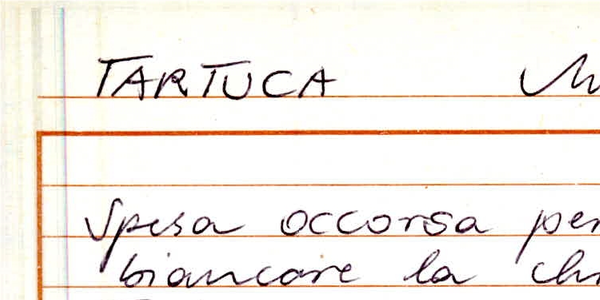 TARTUCA
Spesa occorsa per
biancare la